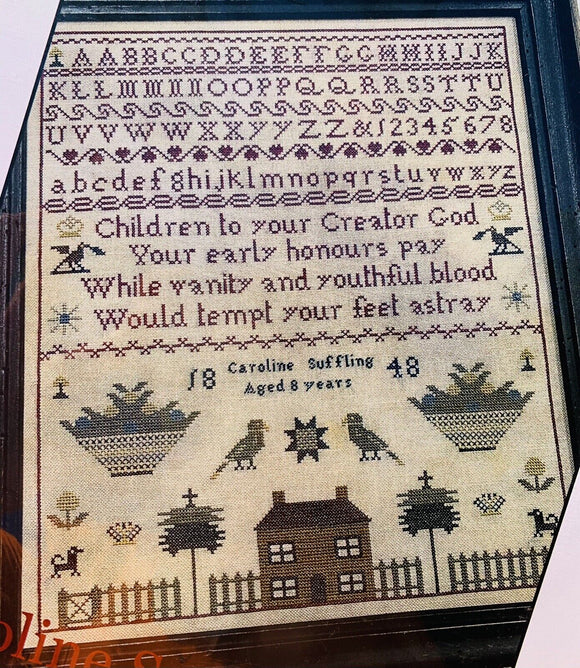 AABBCCDDEEFFGGHHIIJJK
KLLMMNNOOPPQQRRSSTTU
UVVWWXXYYZZ&12345678
abcdefghijklmnopqrstuvwxyz
Children to your Creator God
Your early honours pay
While vanity and youthful blood
Would tempt your feet astray
18 Caroline Suffling 48
Aged 8 years
oline S